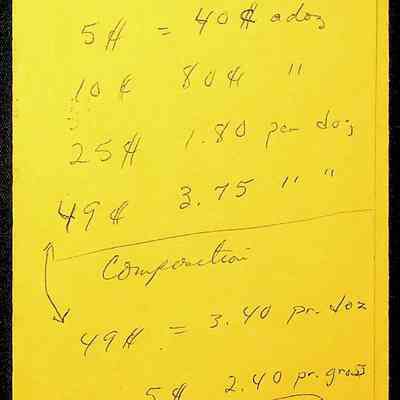 5¢ = 40¢ a doz
10¢ 80¢ "
25¢ 1.80 per doz
49¢ 3.75 " "
Composition
49¢ = 3.40 pr. doz
5¢ 2.40 pr. gross